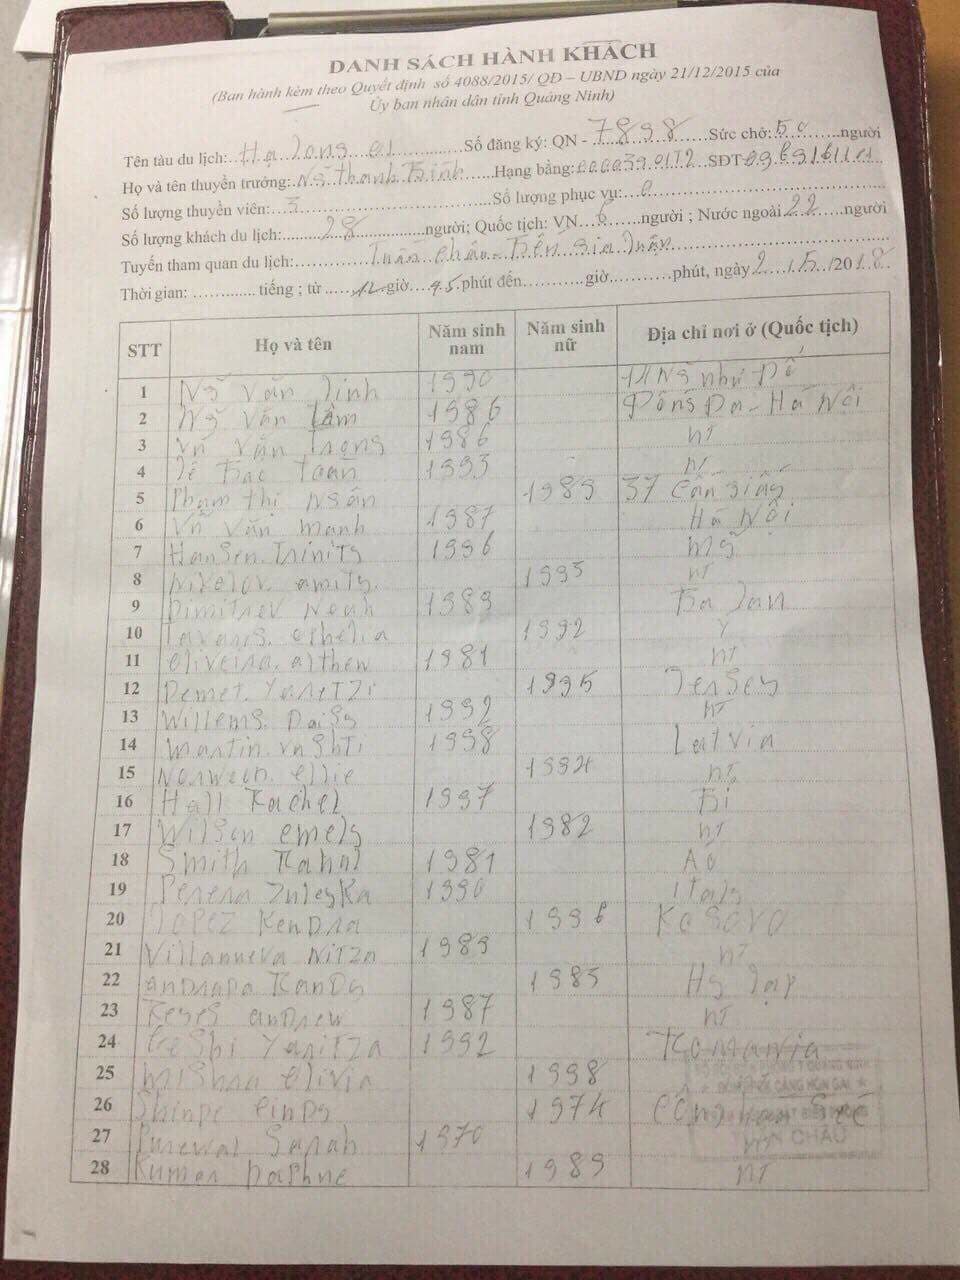 DANH SÁCH HÀNH KHÁCH
(Ban hành kèm theo Quyết định số 4088/2015/ QĐ – UBND ngày 21/12/2015 của
Ủy ban nhân dân tỉnh Quảng Ninh)
Tên tàu du lịch: Hạ Long 01 Số đăng ký: QN - 7898 Sức chở: 50 người
Họ và tên thuyền trưởng: Ng Thanh Bình Hạng bằng: SĐT
Số lượng thuyền viên: 3 Số lượng phục vụ: 0
Số lượng khách du lịch: 28 người; Quốc tịch: VN 6 người ; Nước ngoài 22 người
Tuyến tham quan du lịch: Tuần Châu
Thời gian: tiếng ; từ 12 giờ 45 phút đến giờ phút, ngày 2 /5 /2018
STT Họ và tên Năm sinh nam Năm sinh nữ Địa chỉ nơi ở (Quốc tịch)
1 Ng Văn 1990
2 Ng Văn Tâm 1986 Đống Đa - Hà Nội
3 Vũ Văn Trọng 1986 nt
4 Lê Bảo Toàn 1993 nt
5 Phạm Thị Ngân 1989 37 Cầu Giấy
6 Vũ Văn Mạnh 1987 Hà Nội
7 Hansen. Trinity 1996 Mỹ
8 Nikolov. amity. 1995 nt
9 Dimitrev Noah 1989 Ba Lan
10 Tavares. Ophelia 1992 Ý
11 Oliveira. althew 1981 nt
12 Demet. Yaretzi 1995 Jersey
13 Willems. Daisy 1992 nt
14 Martin. Vashti 1998 Latvia
15 ellie 1994 nt
16 Hall Rachel 1997 Bỉ
17 Wilson emely 1982 nt
18 Smith 1981 Áo
19 Perera Zuleyka 1990 Italy
20 Lopez Kendra 1996 Kosovo
21 Villanueva Nitza 1989 nt
22 Andrada Randy 1985 Hy Lạp
23 Reyes andrew 1987 nt
24 Yaritza 1992 Romania
25 Mishra Olivia 1998
26 Shinde 1974
27 Sarah 1970
28 Kumar Daphne 1989 nt